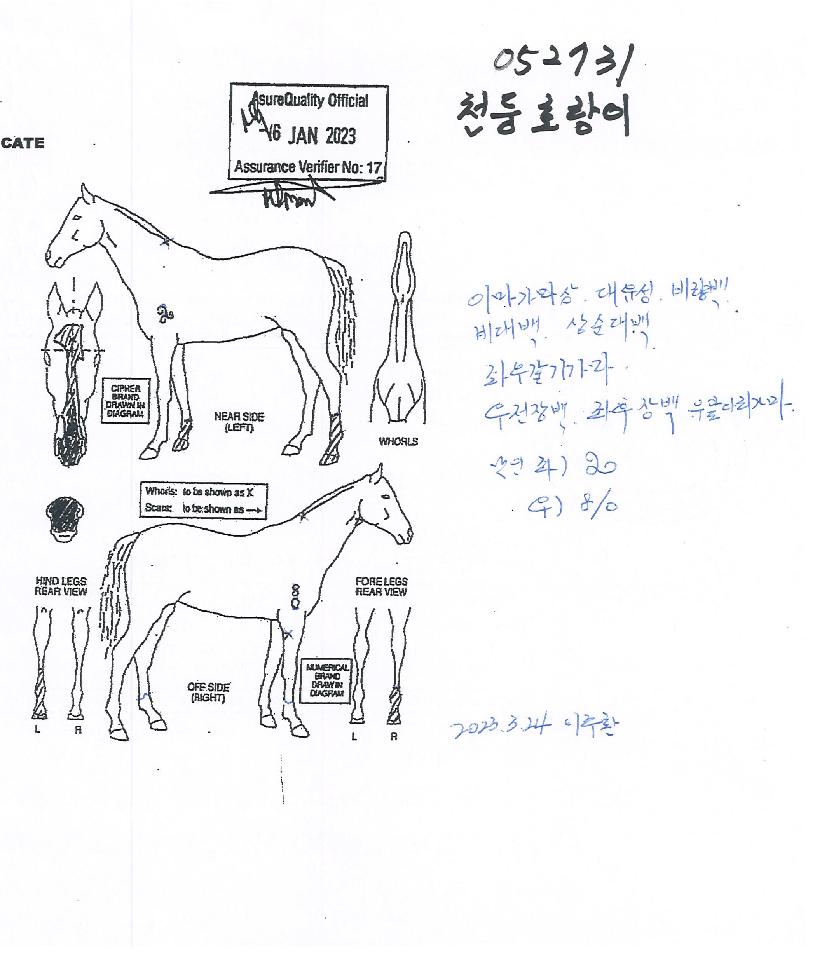 052731
천둥호랑이
CATE
AsureQuality Official
16 JAN 2023
Assurance Verifier No: 17
이마가마상. 대유성. 비량백
비대백. 상순대백
좌우갈기가마.
우전장백. 좌후장백
낙인 좌) 20
우) 8/0
CIPHER
BRAND
DRAWN IN
DIAGRAM
NEAR SIDE
(LEFT)
WHORLS
Whorls: to be shown as X
Scars: to be shown as →
HIND LEGS
REAR VIEW
FORE LEGS
REAR VIEW
8
0
OFF SIDE
(RIGHT)
NUMERICAL
BRAND
DRAWN IN
DIAGRAM
L R
L R
2023.3.24